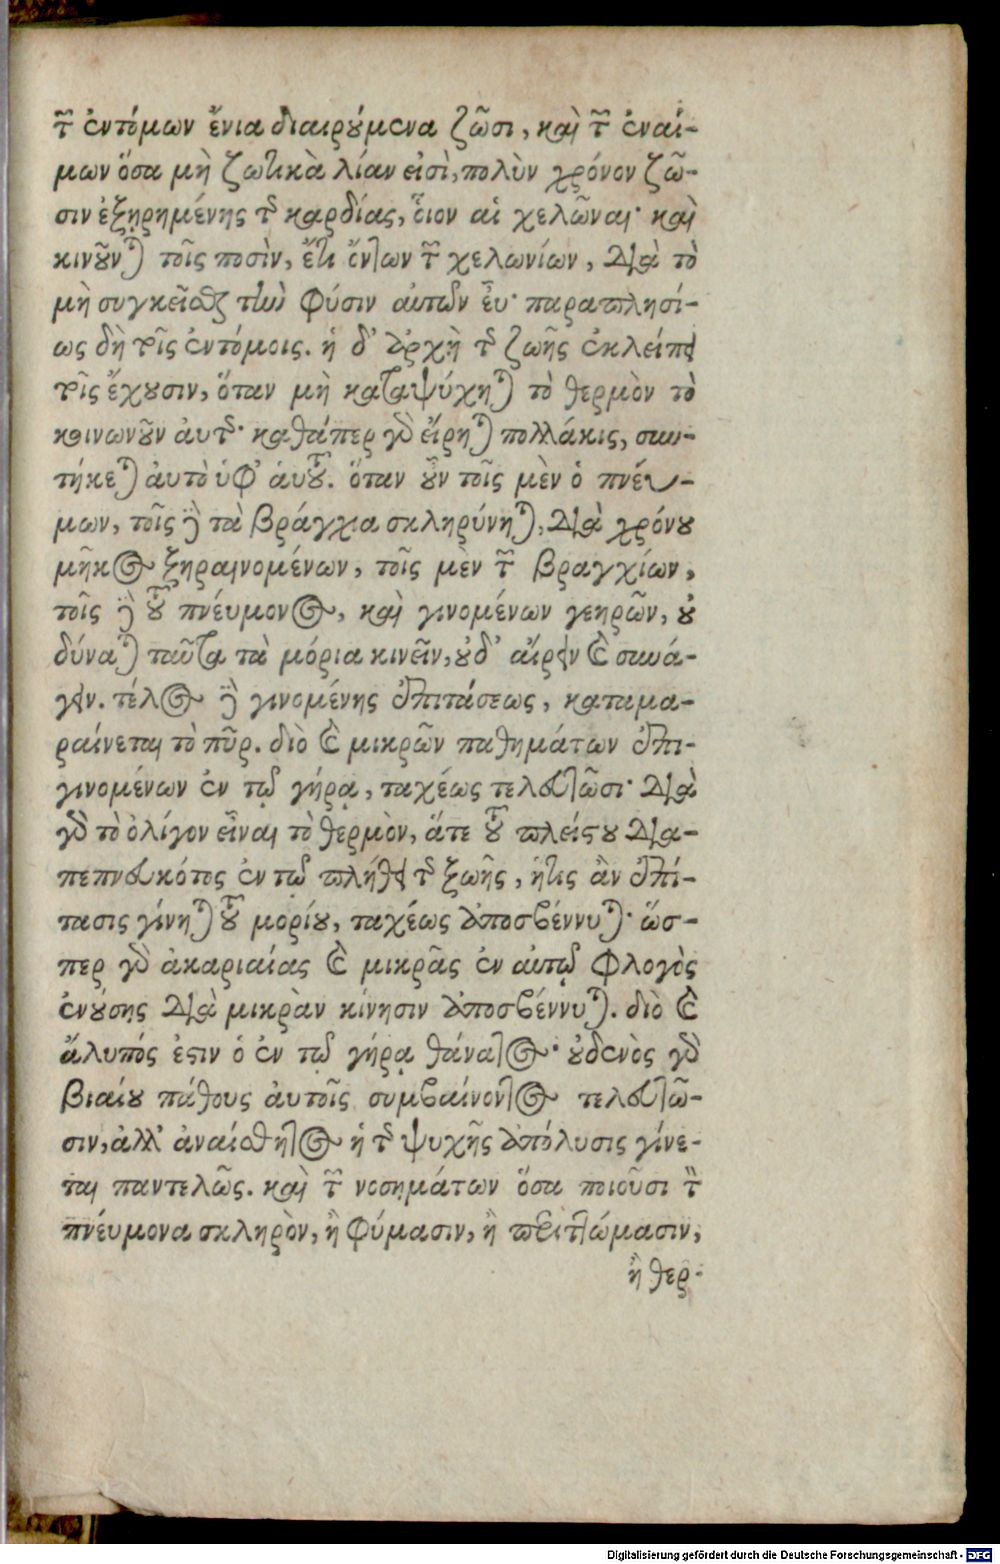 τῶν ἐντόμων ἔνια διαιρούμενα ζῶσι, καὶ τῶν ἐναί-
μων ὅσα μὴ ζωτικὰ λίαν εἰσὶ, πολὺν χρόνον ζῶ-
σιν ἐξῃρημένης τῆς καρδίας, οἷον αἱ χελῶναι· καὶ
κινοῦνται τοῖς ποσὶν, ἔτι ὄντων τῶν χελωνίων, διὰ τὸ
μὴ συγκεῖσθαι τὴν φύσιν αὐτῶν εὖ· παραπλησί-
ως δὴ τοῖς ἐντόμοις. ἡ δ' ἀρχὴ τῆς ζωῆς ἐκλείπει
τοῖς ἔχουσιν, ὅταν μὴ καταψύχηται τὸ θερμὸν τὸ
κοινωνοῦν αὐτῆς· καθάπερ γὰρ εἴρηται πολλάκις, συν-
τήκεται αὐτὸ ὑφ' αὑτοῦ. ὅταν οὖν τοῖς μὲν ὁ πνεύ-
μων, τοῖς δὲ τὰ βράγχια σκληρύνηται, διὰ χρόνου
μῆκος ξηραινομένων, τοῖς μὲν τῶν βραγχίων,
τοῖς δὲ τοῦ πνεύμονος, καὶ γινομένων γεηρῶν, οὐ
δύναται ταῦτα τὰ μόρια κινεῖν, οὐδ' αἴρειν καὶ συνά-
γειν. τέλος δὲ γινομένης ἐπιτάσεως, καταμα-
ραίνεται τὸ πῦρ. διὸ καὶ μικρῶν παθημάτων ἐπι-
γινομένων ἐν τῷ γήρᾳ, ταχέως τελευτῶσι· διὰ
γὰρ τὸ ὀλίγον εἶναι τὸ θερμὸν, ἅτε τοῦ πλείστου δια-
πεπνευκότος ἐν τῷ πλήθει τῆς ζωῆς, ἥτις ἂν ἐπί-
τασις γίνηται τοῦ μορίου, ταχέως ἀποσβέννυται· ὥσ-
περ γὰρ ἀκαριαίας καὶ μικρᾶς ἐν αὐτῷ φλογὸς
ἐνούσης διὰ μικρὰν κίνησιν ἀποσβέννυται. διὸ καὶ
ἄλυπός ἐστιν ὁ ἐν τῷ γήρᾳ θάνατος· οὐδενὸς γὰρ
βιαίου πάθους αὐτοῖς συμβαίνοντος τελευτῶ-
σιν, ἀλλ' ἀναίσθητος ἡ τῆς ψυχῆς ἀπόλυσις γίνε-
ται παντελῶς. καὶ τῶν νοσημάτων ὅσα ποιοῦσι τὸν
πνεύμονα σκληρὸν, ἢ φύμασιν, ἢ περιττώμασιν,
ἢ θερ-
Digitalisierung gefördert durch die Deutsche Forschungsgemeinschaft - DFG